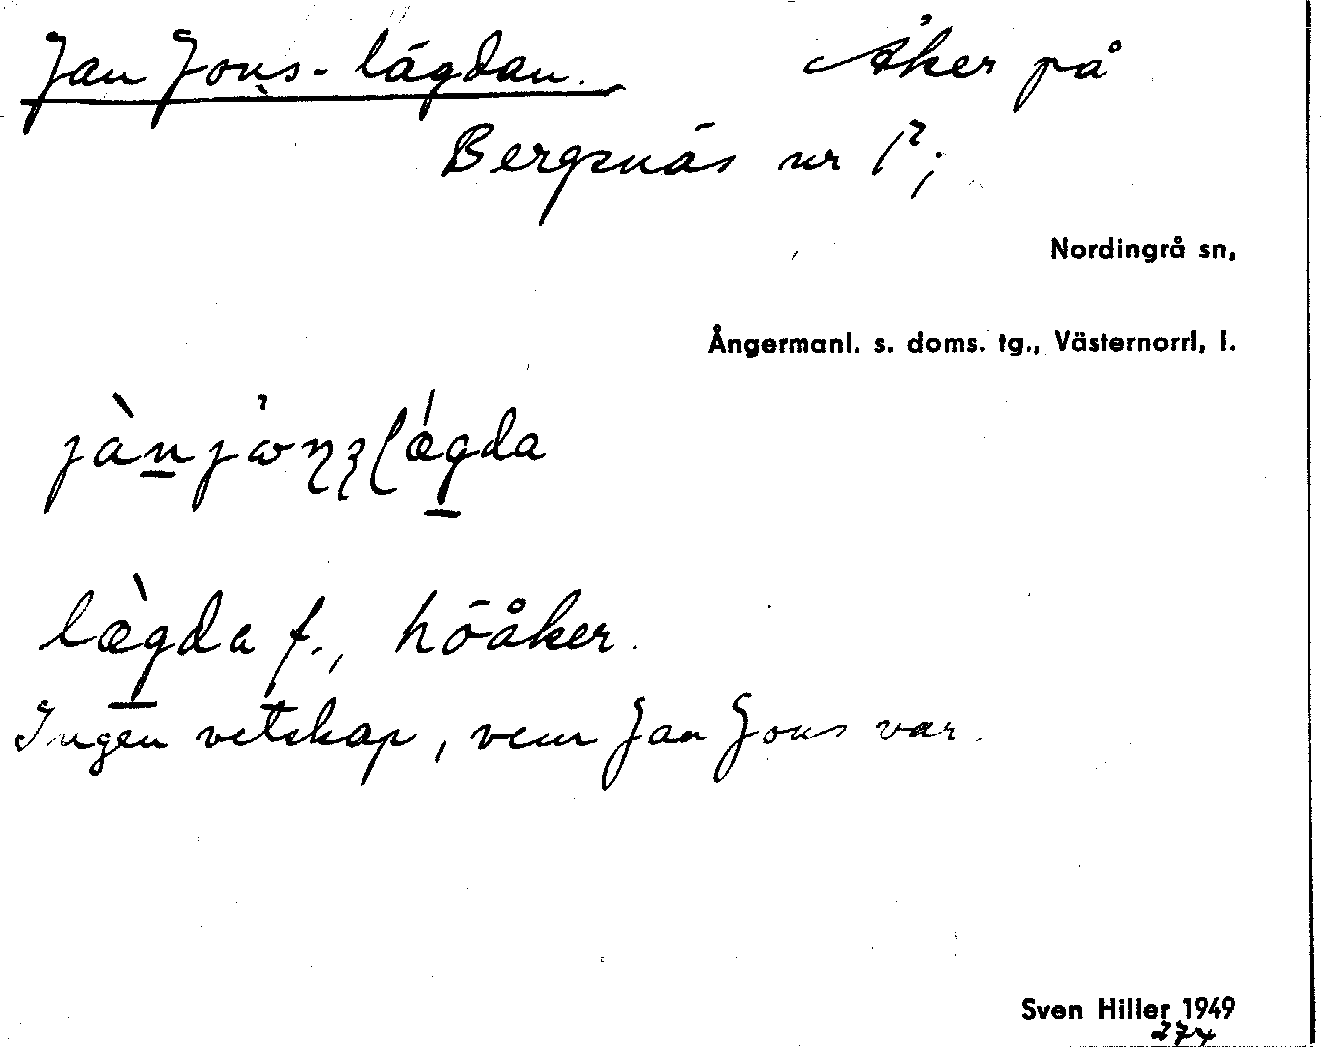 Jan Jons-lägdan. Åker på
Bergsnäs nr 1²;
Nordingrå sn,
Ångermanl. s. doms. tg., Västernorrl. l.
lægda f., höåker.
Ingen vetskap, vem Jan Jons var.
Sven Hiller 1949
274